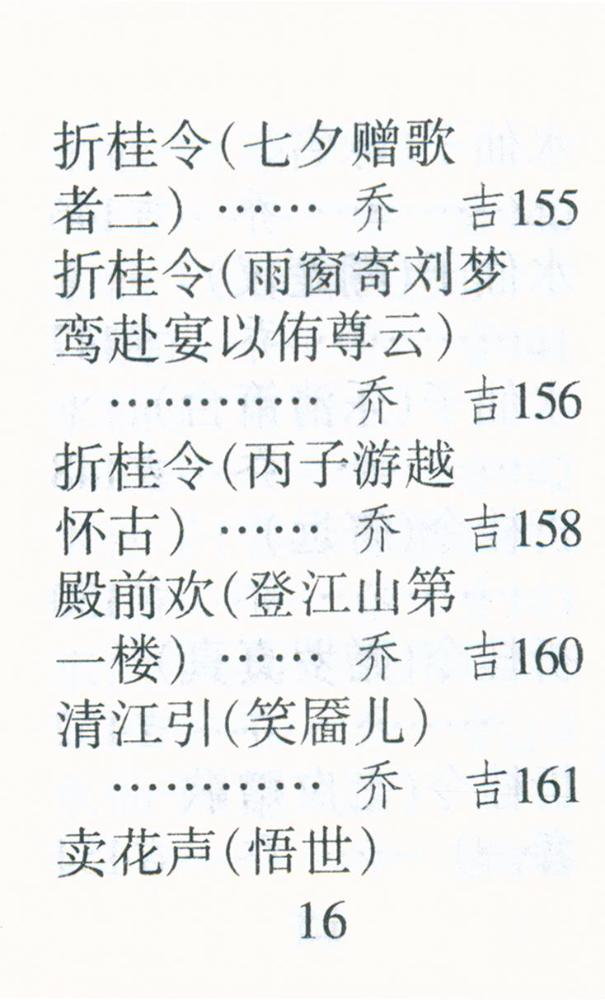 折桂令(七夕赠歌
者二) …… 乔 吉155
折桂令(雨窗寄刘梦
鸾赴宴以侑尊云)
………… 乔 吉156
折桂令(丙子游越
怀古) …… 乔 吉158
殿前欢(登江山第
一楼) …… 乔 吉160
清江引(笑靥儿)
………… 乔 吉161
卖花声(悟世)
16